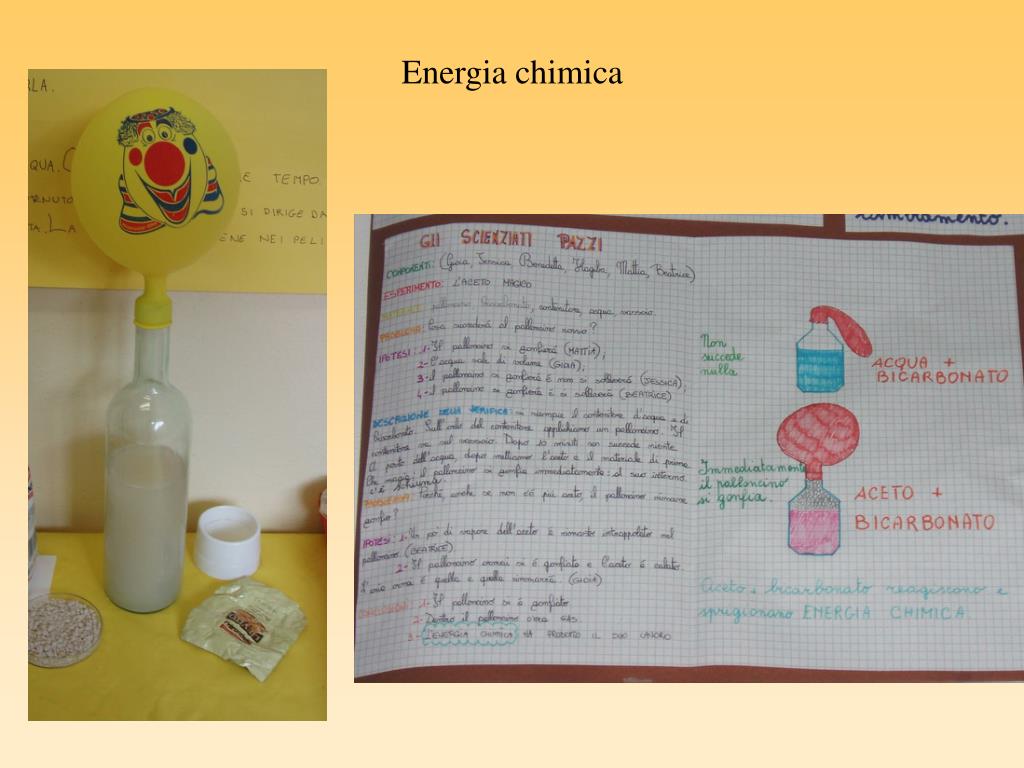 Energia chimica
RLA.
QUA.
E TEMPO.
RNUTO
SI DIRIGE DA
TA. LA
ENE NEI PELI
GLI SCIENZIATI PAZZI
COMPONENTI: (Gioia, Jessica, Benedetta, Mattia, Beatrice)
ESPERIMENTO: L'ACETO MAGICO
MATERIALE: palloncino, bicarbonato, contenitore, acqua,
PROBLEMA: Cosa succederà al palloncino rosso?
IPOTESI: 1- Il palloncino si gonfierà (MATTIA);
2- L'acqua sale di volume (GIOIA);
3- il palloncino si gonfierà e non si solleverà (JESSICA);
4- il palloncino si gonfierà e si solleverà (BEATRICE)
DESCRIZIONE DELLA VERIFICA: si riempie il contenitore d'acqua e di
bicarbonato. Sull'orlo del contenitore applichiamo un palloncino. Il
contenitore sul Dopo 10 minuti non succede niente.
Al posto dell'acqua, dopo mettiamo l'aceto e il materiale di prima.
Che magia: il palloncino si gonfia immediatamente: al suo interno
c'è schiuma.
PROBLEMA: Perché, anche se non c'è più aceto, il palloncino rimane
gonfio?
IPOTESI: 1- Un po' di vapore dell'aceto è rimasto intrappolato nel
palloncino. (BEATRICE)
2- Il palloncino ormai si è gonfiato e l'aceto è calato:
l'aria ormai è quella e quella rimarrà. (GIOIA)
CONCLUSIONI: 1- Il palloncino si è gonfiato
2- Dentro il palloncino c'era GAS.
3- L'ENERGIA CHIMICA HA PRODOTTO IL SUO LAVORO
Non
succede
nulla
ACQUA +
BICARBONATO
Immediatamente
il palloncino
si gonfia.
ACETO +
BICARBONATO
Aceto e bicarbonato reagiscono e
sprigionano ENERGIA CHIMICA